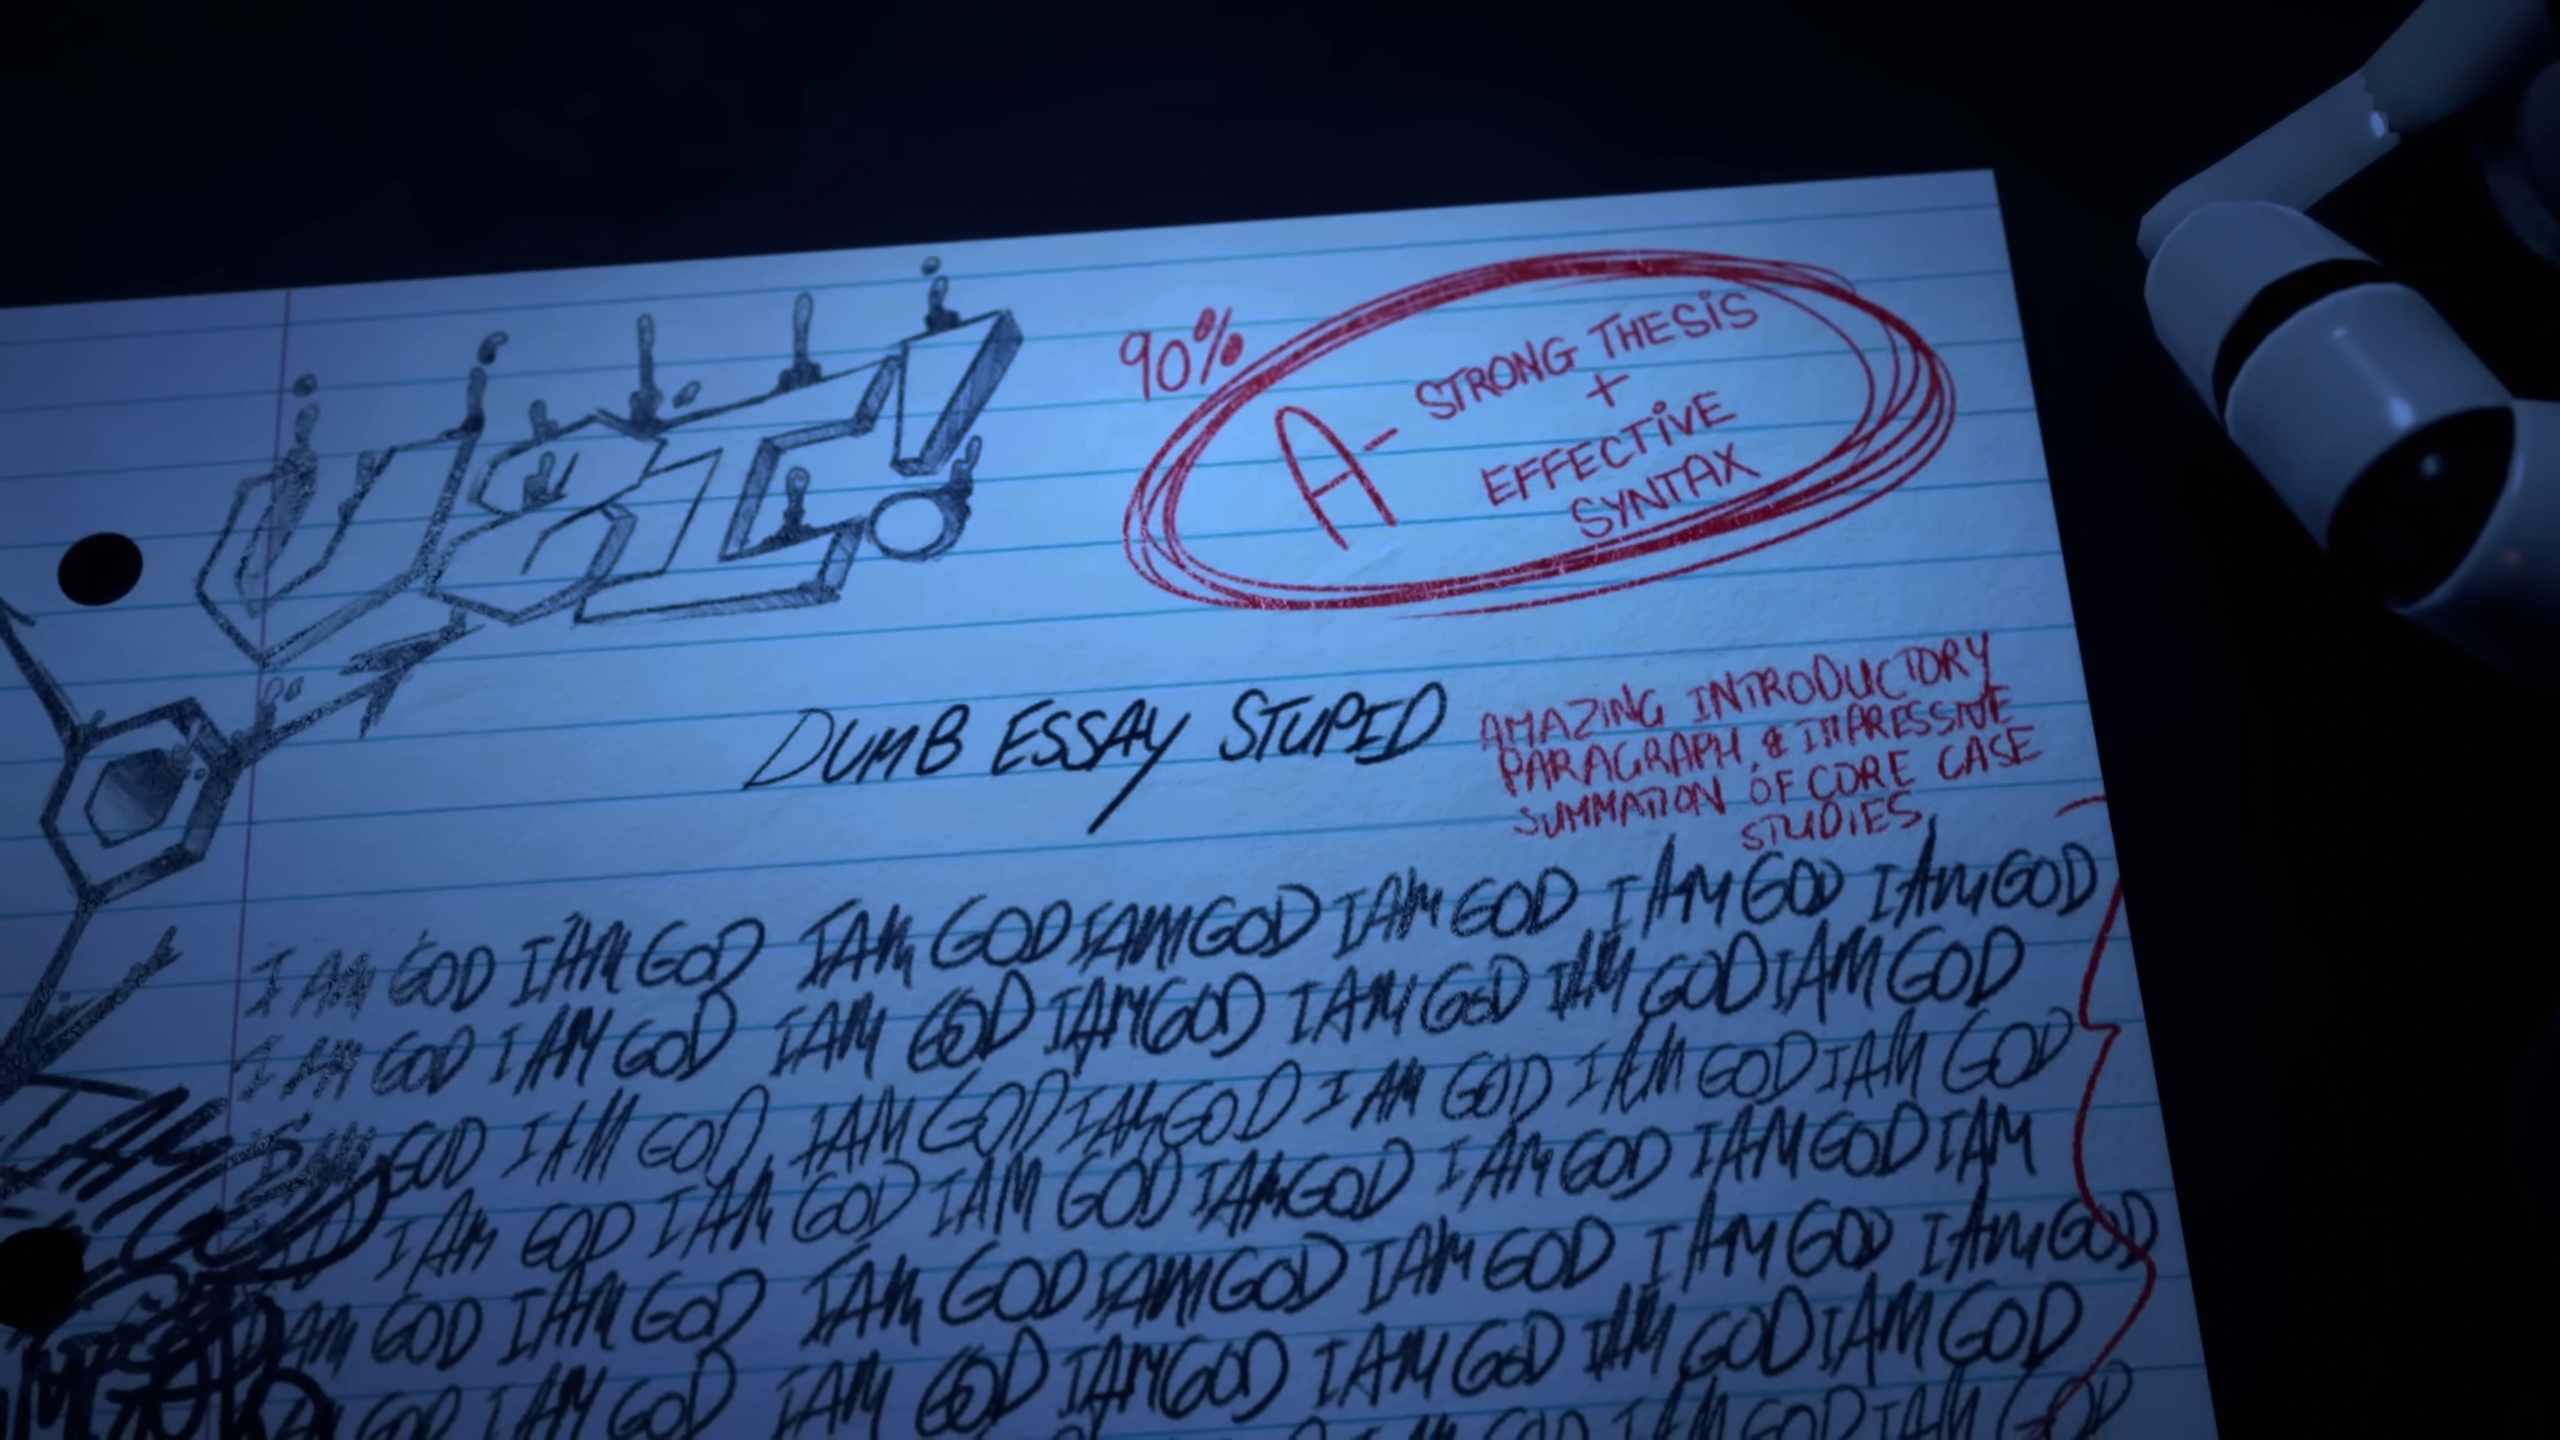 90%
A- STRONG THESIS
+
EFFECTIVE
SYNTAX
DUMB ESSAY STUPID
AMAZING INTRODUCTORY
PARAGRAPH, & IMPRESSIVE
SUMMATION OF CORE CASE
STUDIES
I AM GOD I AM GOD I AM GOD I AM GOD I AM GOD I AM GOD I AM GOD
I AM GOD I AM GOD I AM GOD I AM GOD I AM GOD I AM GOD I AM GOD
I AM GOD I AM GOD I AM GOD I AM GOD I AM GOD I AM GOD I AM GOD
GOD I AM GOD I AM GOD I AM GOD I AM GOD I AM GOD I AM GOD I AM
I AM GOD I AM GOD I AM GOD I AM GOD I AM GOD I AM GOD I AM GOD
AM GOD I AM GOD I AM GOD I AM GOD I AM GOD I AM GOD I AM GOD
I AM GOD I AM GOD I AM GOD
I AM
GOD